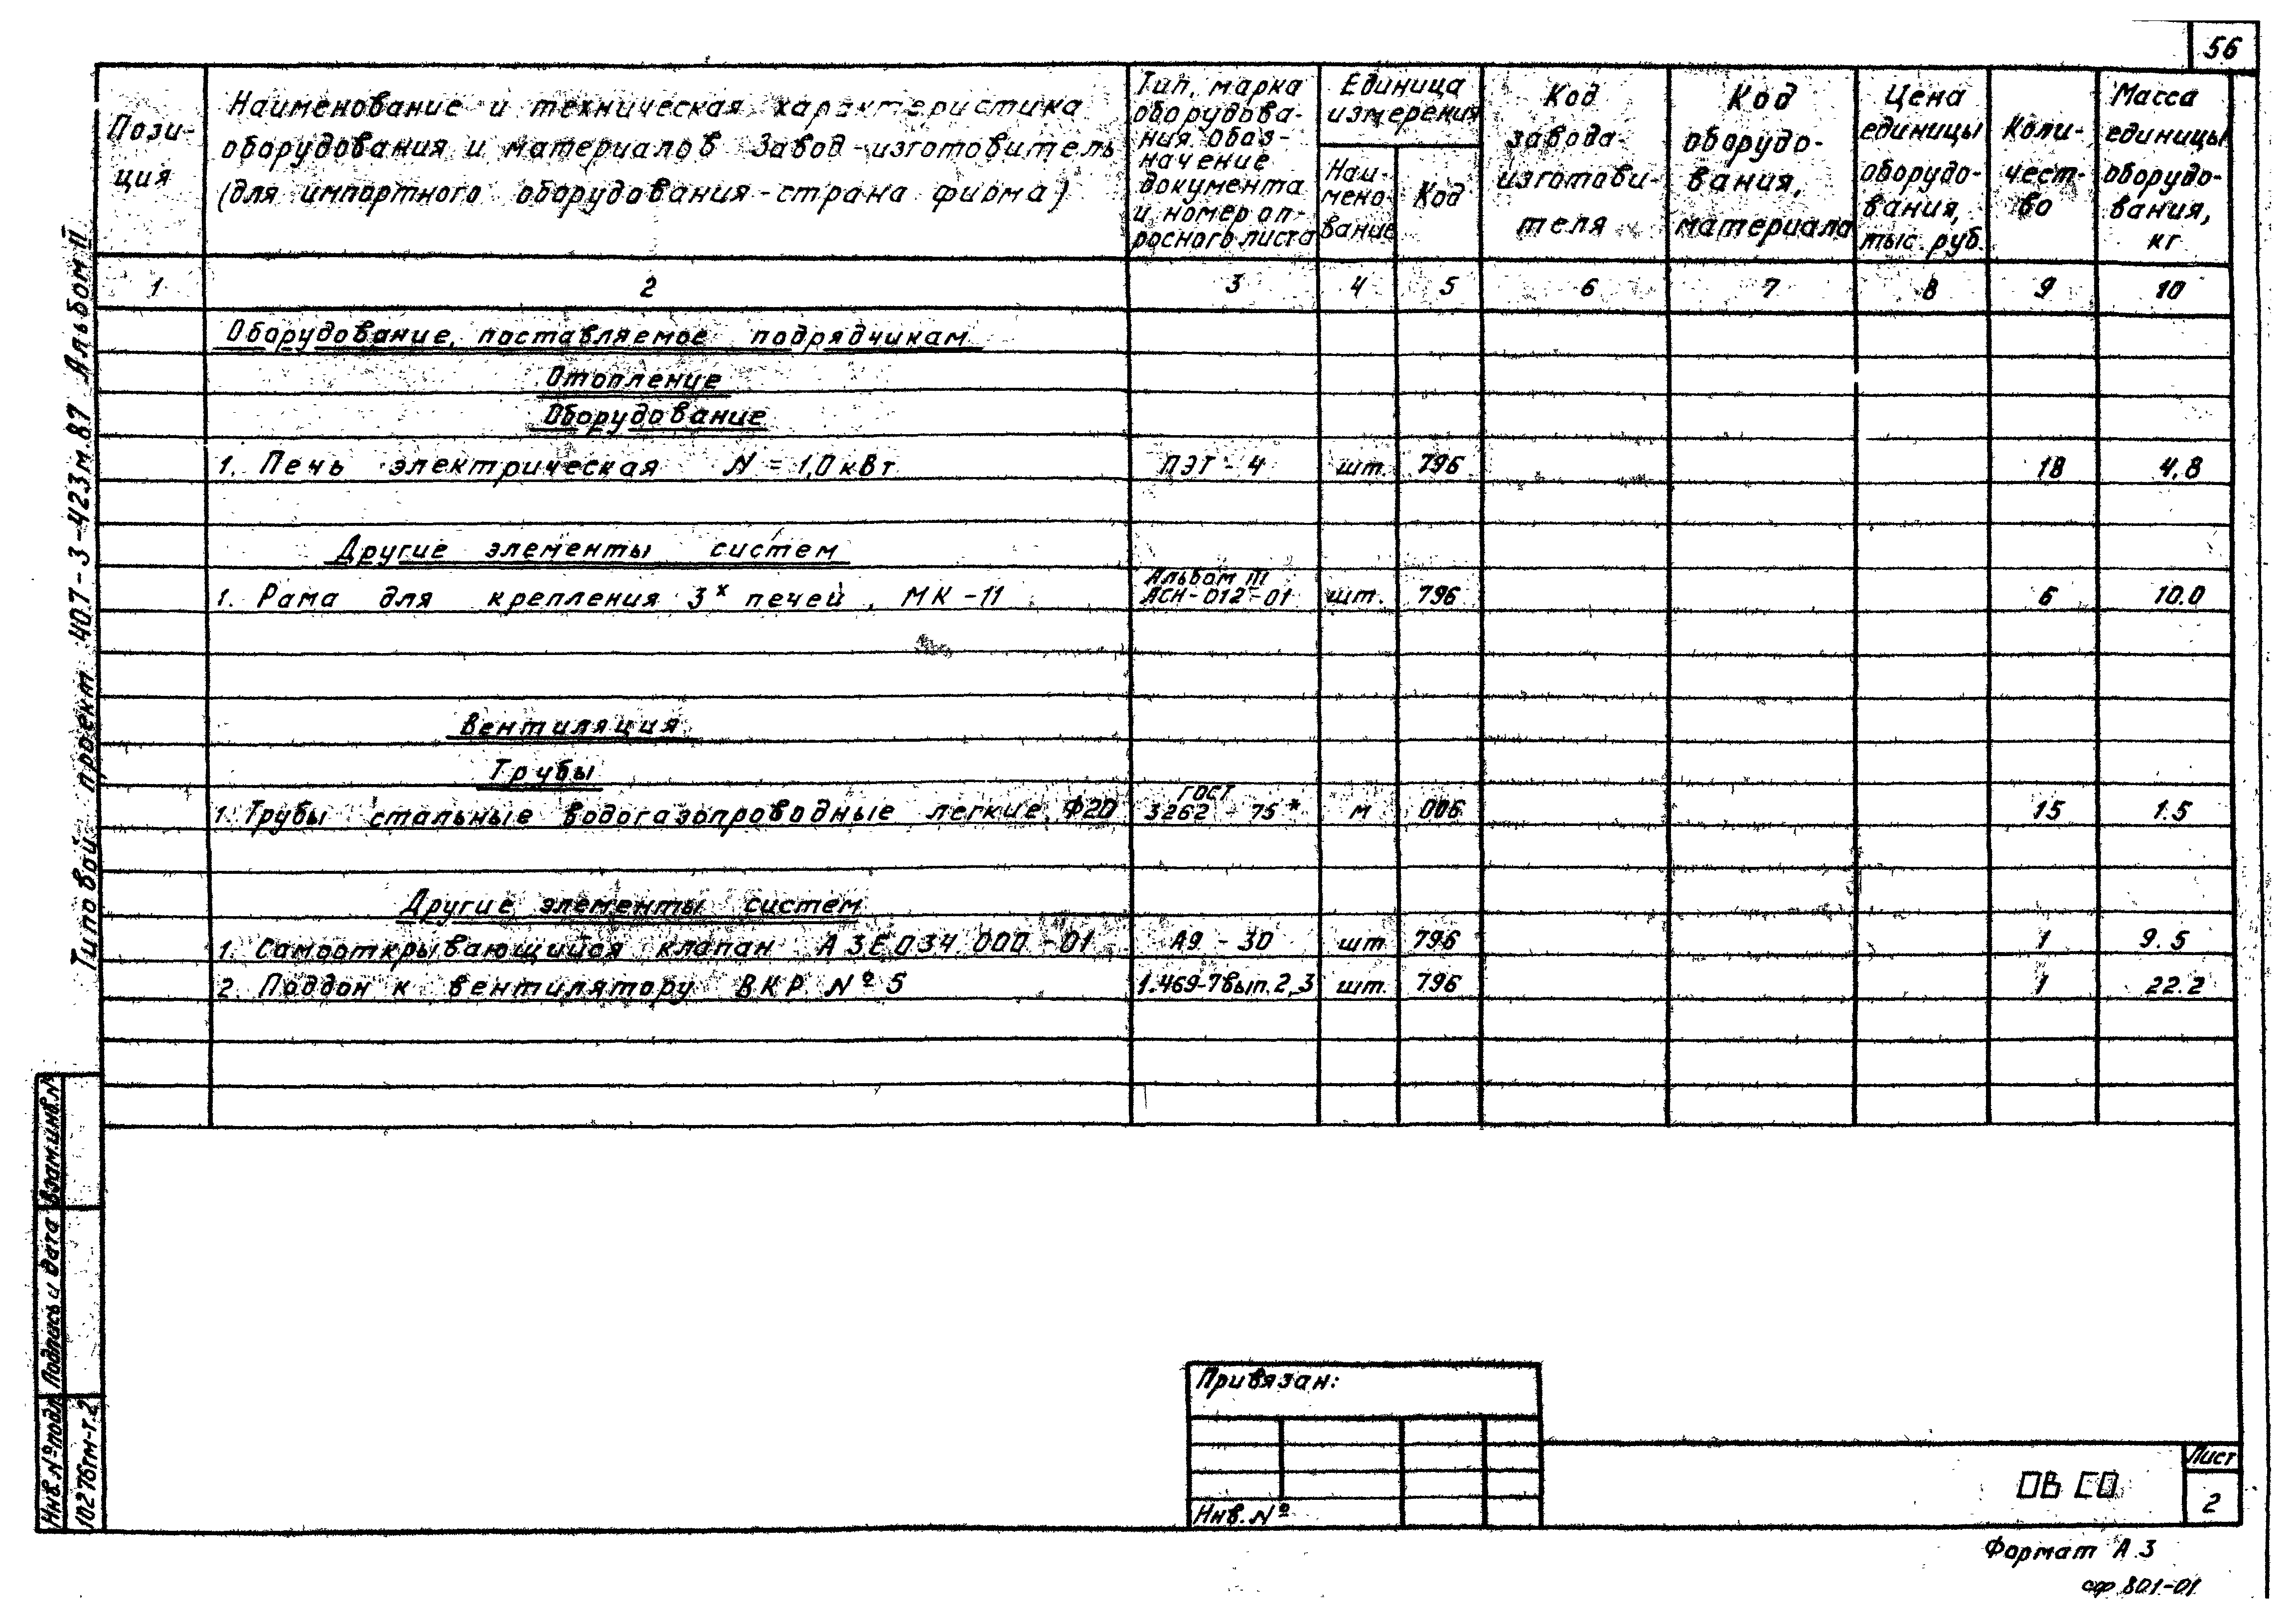 56
Пози-
ция
Наименование и техническая характеристика
оборудования и материалов Завод-изготовитель
(для импортного оборудования-страна фирма)
Тип, марка
оборудова-
ния. обоз-
начение
документа
и номер оп-
росного листа
Единица
измерения
Наи-
мено-
вание
Код
Код
завода-
изготови-
теля
Код
оборудо-
вания,
материала
Цена
единицы
оборудо-
вания,
тыс. руб.
Коли-
чест-
во
Масса
единицы
оборудо-
вания,
кг
1 2 3 4 5 6 7 8 9 10
Оборудование, поставляемое подрядчикам
Отопление
Оборудование
1. Печь электрическая N = 1,0 кВт ПЭТ - 4 шт. 796 18 4,8
Другие элементы систем
1. Рама для крепления 3х печей, МК-11 Альбом III АСН-012-01 шт. 796 6 10.0
Вентиляция
Трубы
1. Трубы стальные водогазопроводные легкие Ф20 ГОСТ 3262 - 75* м 006 15 1.5
Другие элементы систем
1. Самооткрывающийся клапан АЗЕ034.000-01 А9 - 30 шт 796 1 9.5
2. Поддон к вентилятору ВКР №5 1.469-7 вып. 2,3 шт. 796 1 22.2
Типовой проект 407-3-423м.87 Альбом II
Взам.инв.№
Подпись и дата
Инв.№подл
10276тм-т.2
Привязан:
Инв.№
ОВ СО
Лист
2
Формат А3
сф 801-01